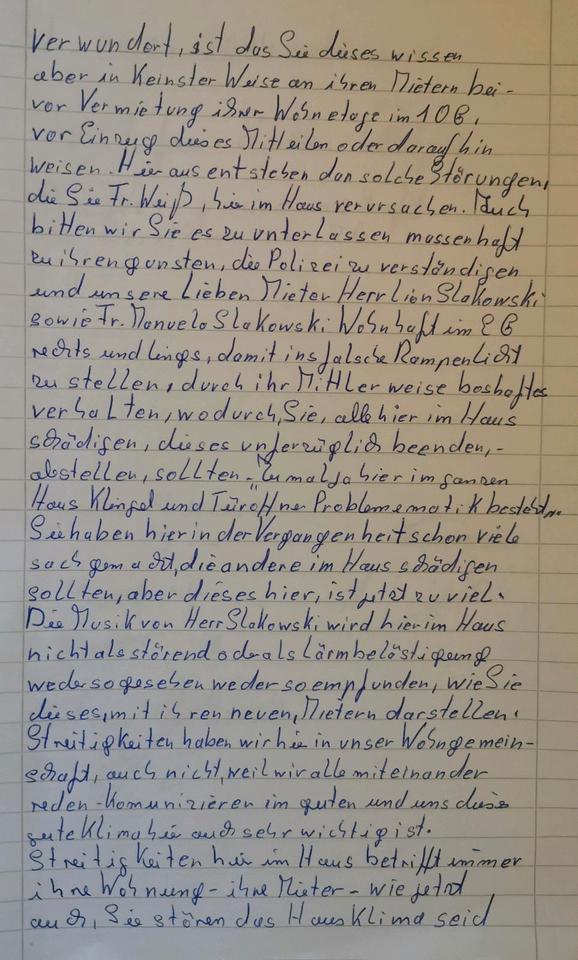 Verwundert, ist das Sie dieses wissen
aber in Keinster Weise an ihren Mietern bei-
vor Vermietung ihrer Wohnetage im 1OG,
vor Einzug dieses Mitteilen oder darauf hin
weisen. Hier aus entstehen dan solche Störungen,
die Sie Fr. Weiß, hie im Haus verursachen. Auch
bitten wir Sie es zu unterlassen massenhaft
zu ihren gunsten, die Polizei zu verständigen
und unsere Lieben Mieter Herr Lion Slakowski
sowie Fr. Manuela Slakowski Wohnhaft im EG
rechts und lings, damit ins falsche Rampenlicht
zu stellen, durch ihr Mittler weise boshaftes
verhalten, wodurch, Sie, alle hier im Haus
schädigen, dieses unferzüglich beenden,-
abstellen, sollten - Zumal ja hier im ganzen
Haus Klingel und Türöffner Problemematik besteht,
Sie haben hier in der Vergangenheit schon viele
sach gemacht, die andere im Haus schädigen
sollten, aber dieses hier, ist jetzt zu viel.
Die Musik von Herr Slakowski wird hier im Haus
nicht als störend oder als Lärmbelästigung
weder so gesehen weder so empfunden, wie Sie
dieses, mit ihren neuen, Mietern darstellen.
Streitigkeiten haben wir hie in unser Wohngemein-
schaft, auch nicht, weil wir alle miteinander
reden - Komunizieren im guten und uns diese
gute Klima hie auch sehr wichtig ist.
Streitigkeiten hier im Haus betrifft immer
ihre Wohnung - ihre Mieter - wie jetzt
auch, Sie stören das Haus Klima seid